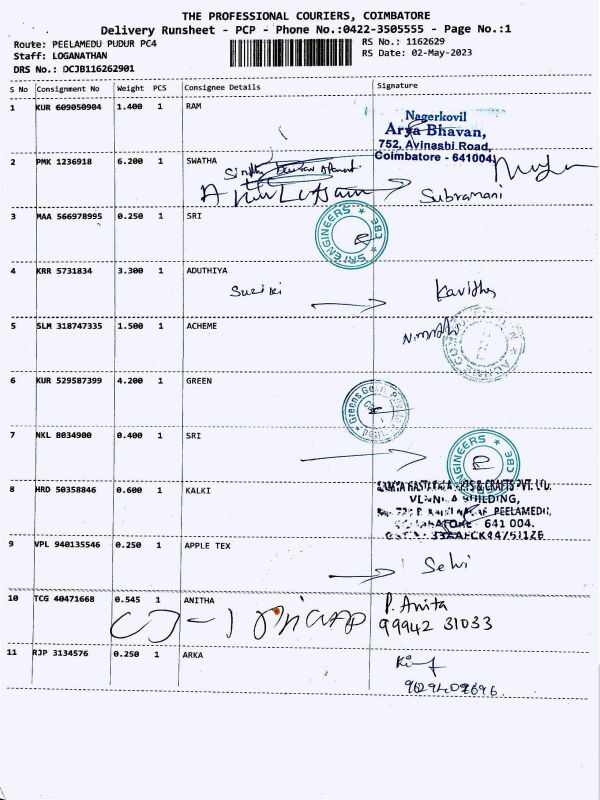 THE PROFESSIONAL COURIERS, COIMBATORE
Delivery Runsheet - PCP - Phone No.:0422-3505555 - Page No.:1
Route: PEELAMEDU PUDUR PC4 RS No.: 1162629
Staff: LOGANATHAN RS Date: 02-May-2023
DRS No.: DCJB116262901
S No Consignment No Weight PCS Consignee Details Signature
1 KUR 609050904 1.400 1 RAM
Nagerkovil
Arya Bhavan,
752, Avinashi Road,
Coimbatore - 641004
2 PMK 1236918 6.200 1 SWATHA
Subramani
3 MAA 566978995 0.250 1 SRI
SRI ENGINEERS ★ CBE ★
4 KRR 5731834 3.300 1 ADUTHIYA
Kavitha
5 SLM 318747335 1.500 1 ACHEME
6 KUR 529587399 4.200 1 GREEN
7 NKL 8034900 0.400 1 SRI
ENGINEERS ★ CBE ★
8 HRD 50358846 0.600 1 KALKI
& CRAFTS PVT. LTD.
BUILDING,
PEELAMEDU,
641 004.
9 VPL 940135546 0.250 1 APPLE TEX
Selvi
10 TCG 40471668 0.545 1 ANITHA
P. Anita
99942 31033
11 RJP 3134576 0.250 1 ARKA